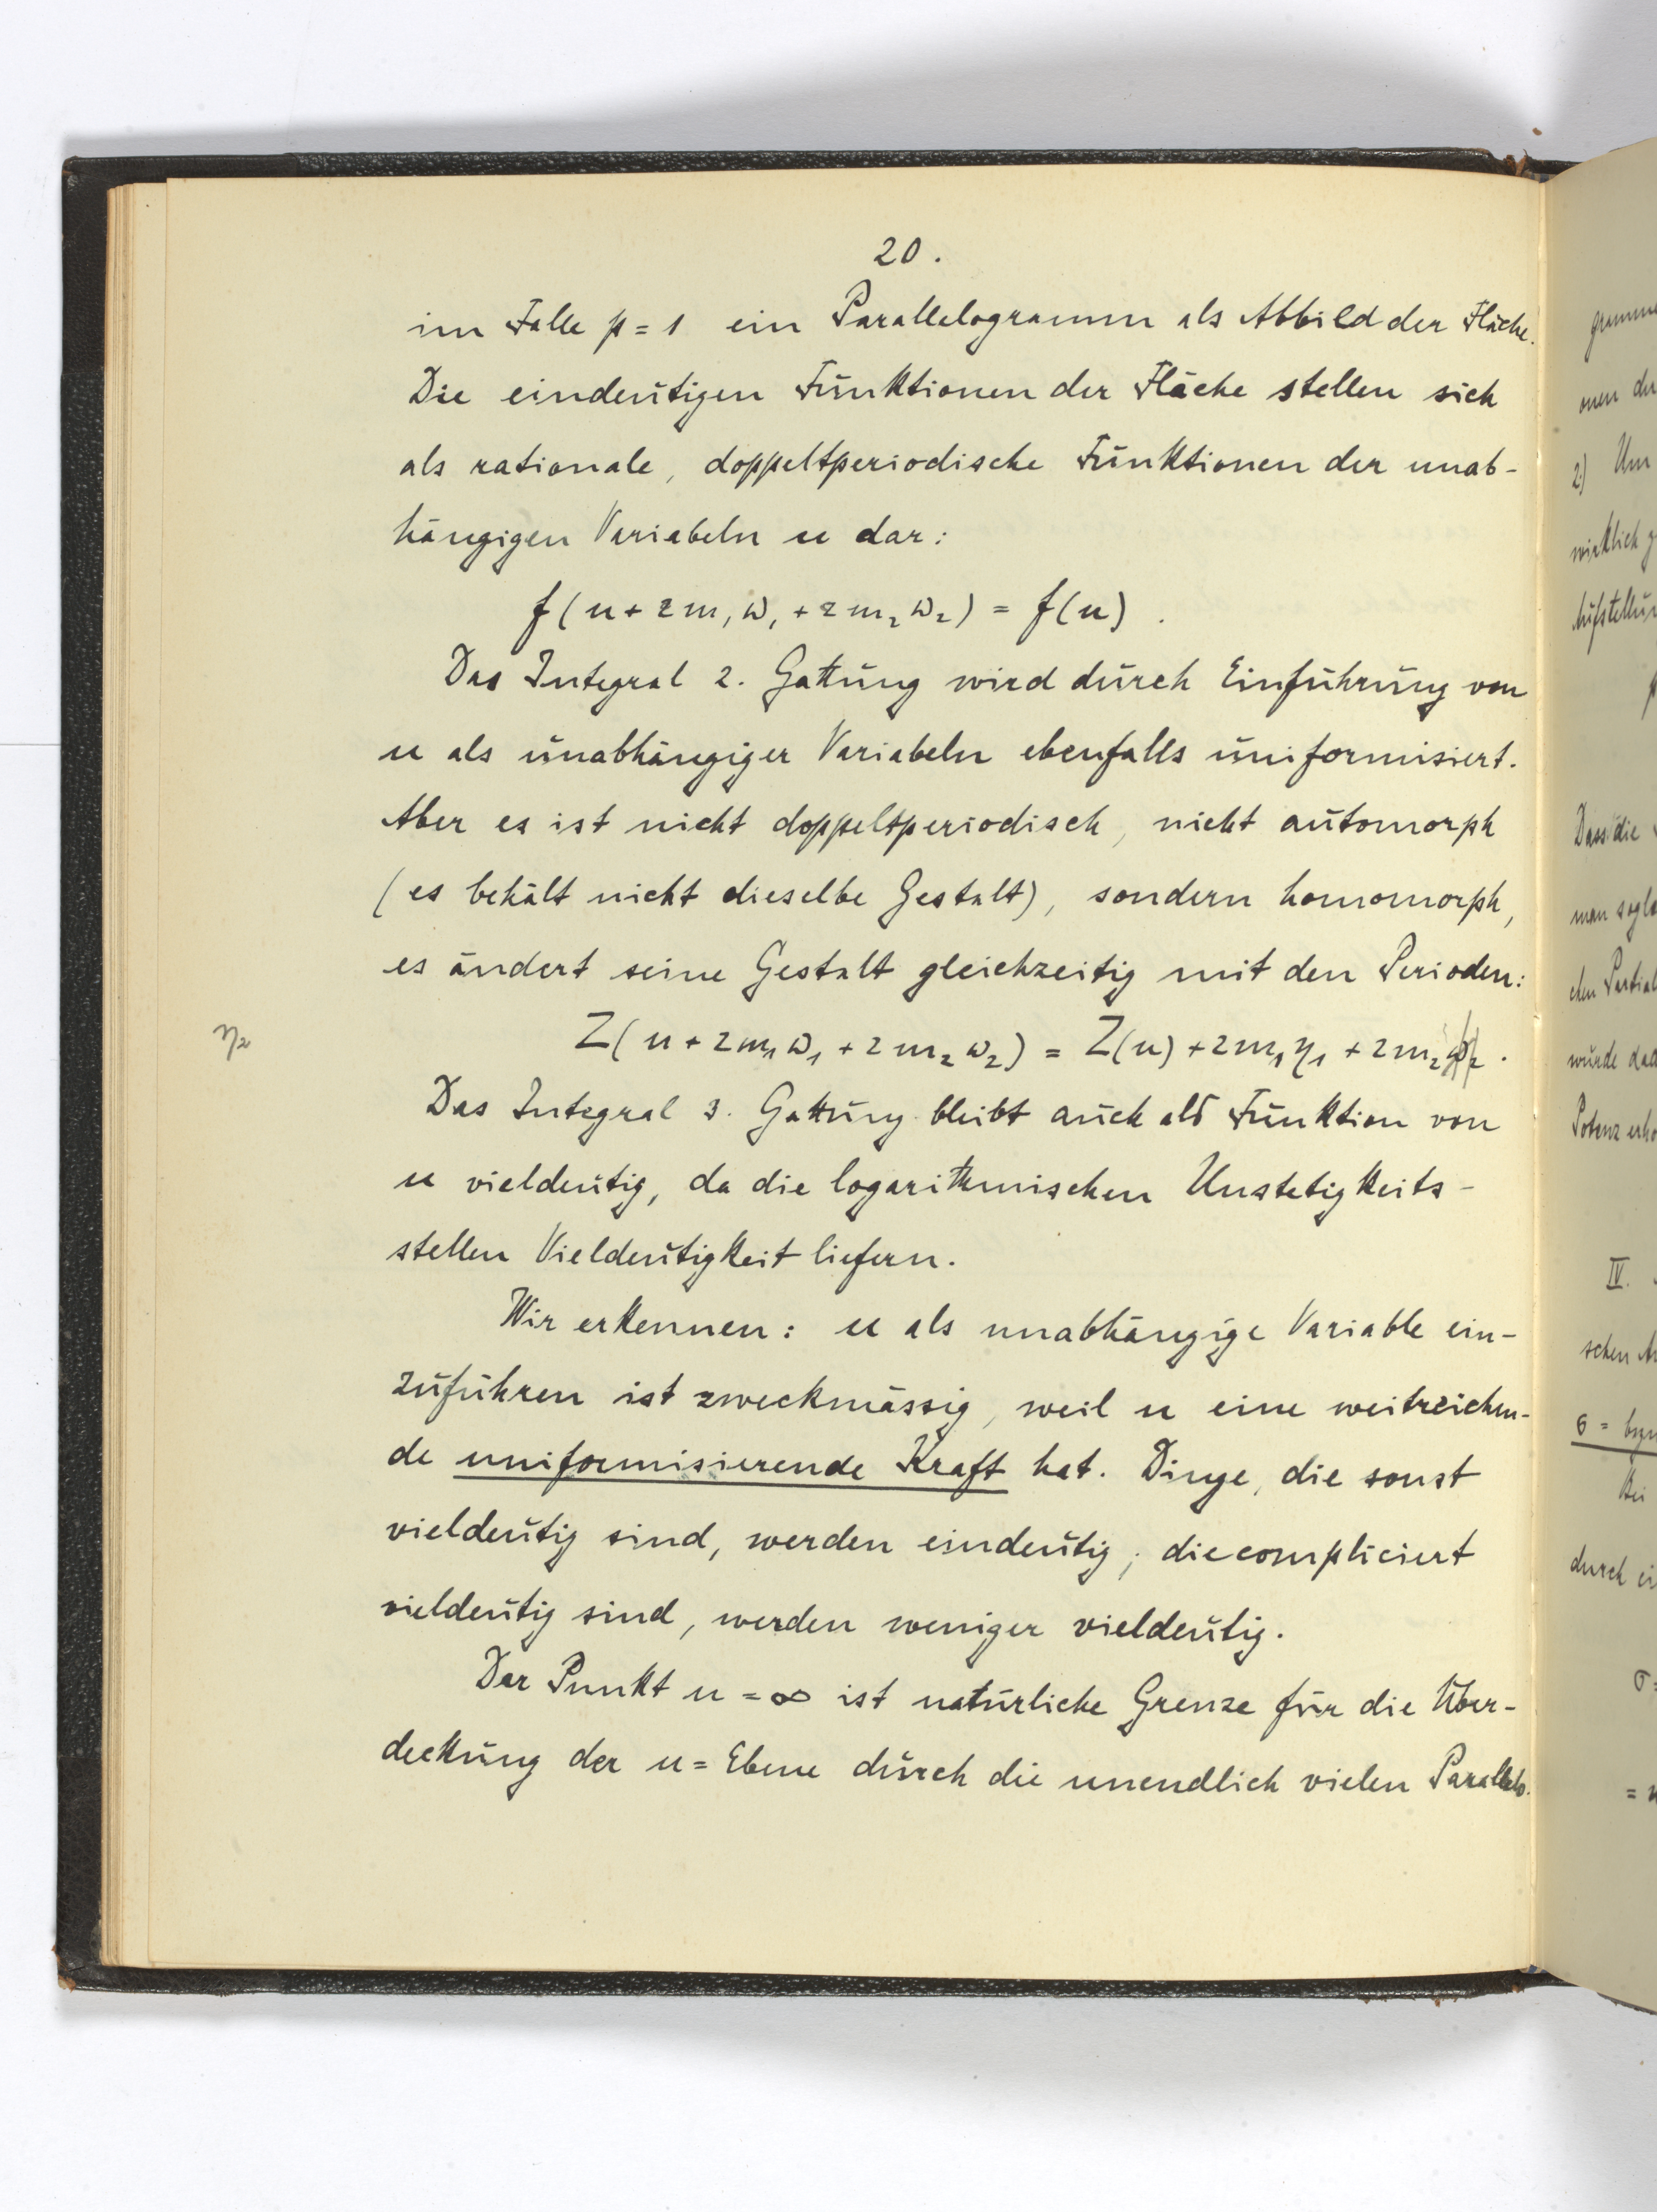 20.
im Falle p = 1 ein Parallelogramm als Abbild der Fläche.
Die eindeutigen Funktionen der Fläche stellen sich
als rationale, doppeltperiodische Funktionen der unab-
hängigen Variabeln u dar:
f(u + 2m₁ω₁ + 2m₂ω₂) = f(u).
Das Integral 2. Gattung wird durch Einführung von
u als unabhängiger Variabeln ebenfalls uniformisiert.
Aber es ist nicht doppeltperiodisch, nicht automorph
(es behält nicht dieselbe Gestalt), sondern homomorph,
es ändert seine Gestalt gleichzeitig mit den Perioden:
η₂
Z(u + 2m₁ω₁ + 2m₂ω₂) = Z(u) + 2m₁η₁ + 2m₂ω₂.
Das Integral 3. Gattung bleibt auch als Funktion von
u vieldeutig, da die logarithmischen Unstetigkeits-
stellen Vieldeutigkeit liefern.
Wir erkennen: u als unabhängige Variable ein-
zuführen ist zweckmässig, weil u eine weitreichen-
de uniformisierende Kraft hat. Dinge, die sonst
vieldeutig sind, werden eindeutig; die compliciert
vieldeutig sind, werden weniger vieldeutig.
Der Punkt u = ∞ ist natürliche Grenze für die Über-
deckung der u = Ebene durch die unendlich vielen Parallelo-
2) Um
wirklich
Dass die
man
würde
Potenz
IV.
schen
σ =
Bei
durch
σ =
=